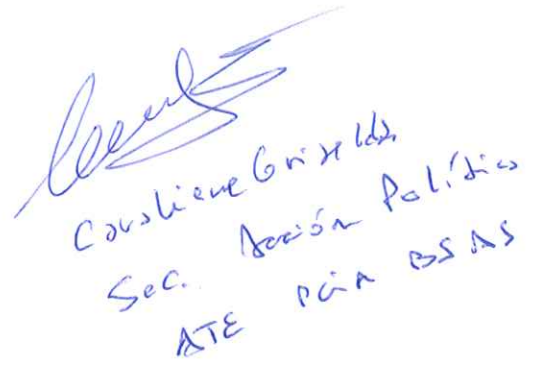 Cavaliere Griselda
Sec. Acción Política
ATE PCIA BSAS